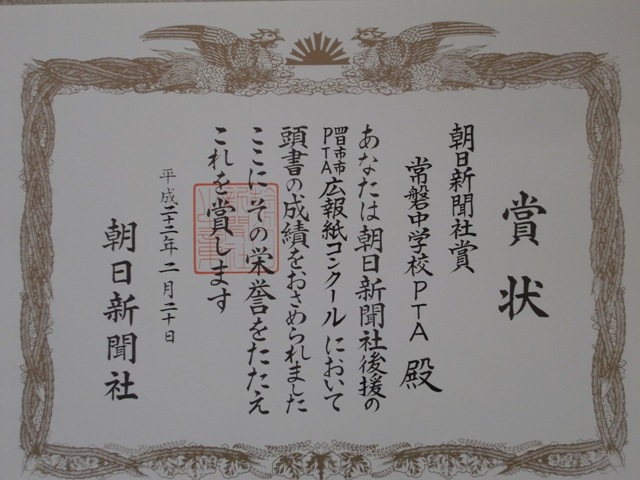 賞状
朝日新聞社賞
常磐中学校PTA 殿
あなたは朝日新聞社後援の
四日市市PTA広報紙コンクールにおいて
頭書の成績をおさめられました
ここにその栄誉をたたえ
これを賞します
平成二十二年二月二十日
朝日新聞社